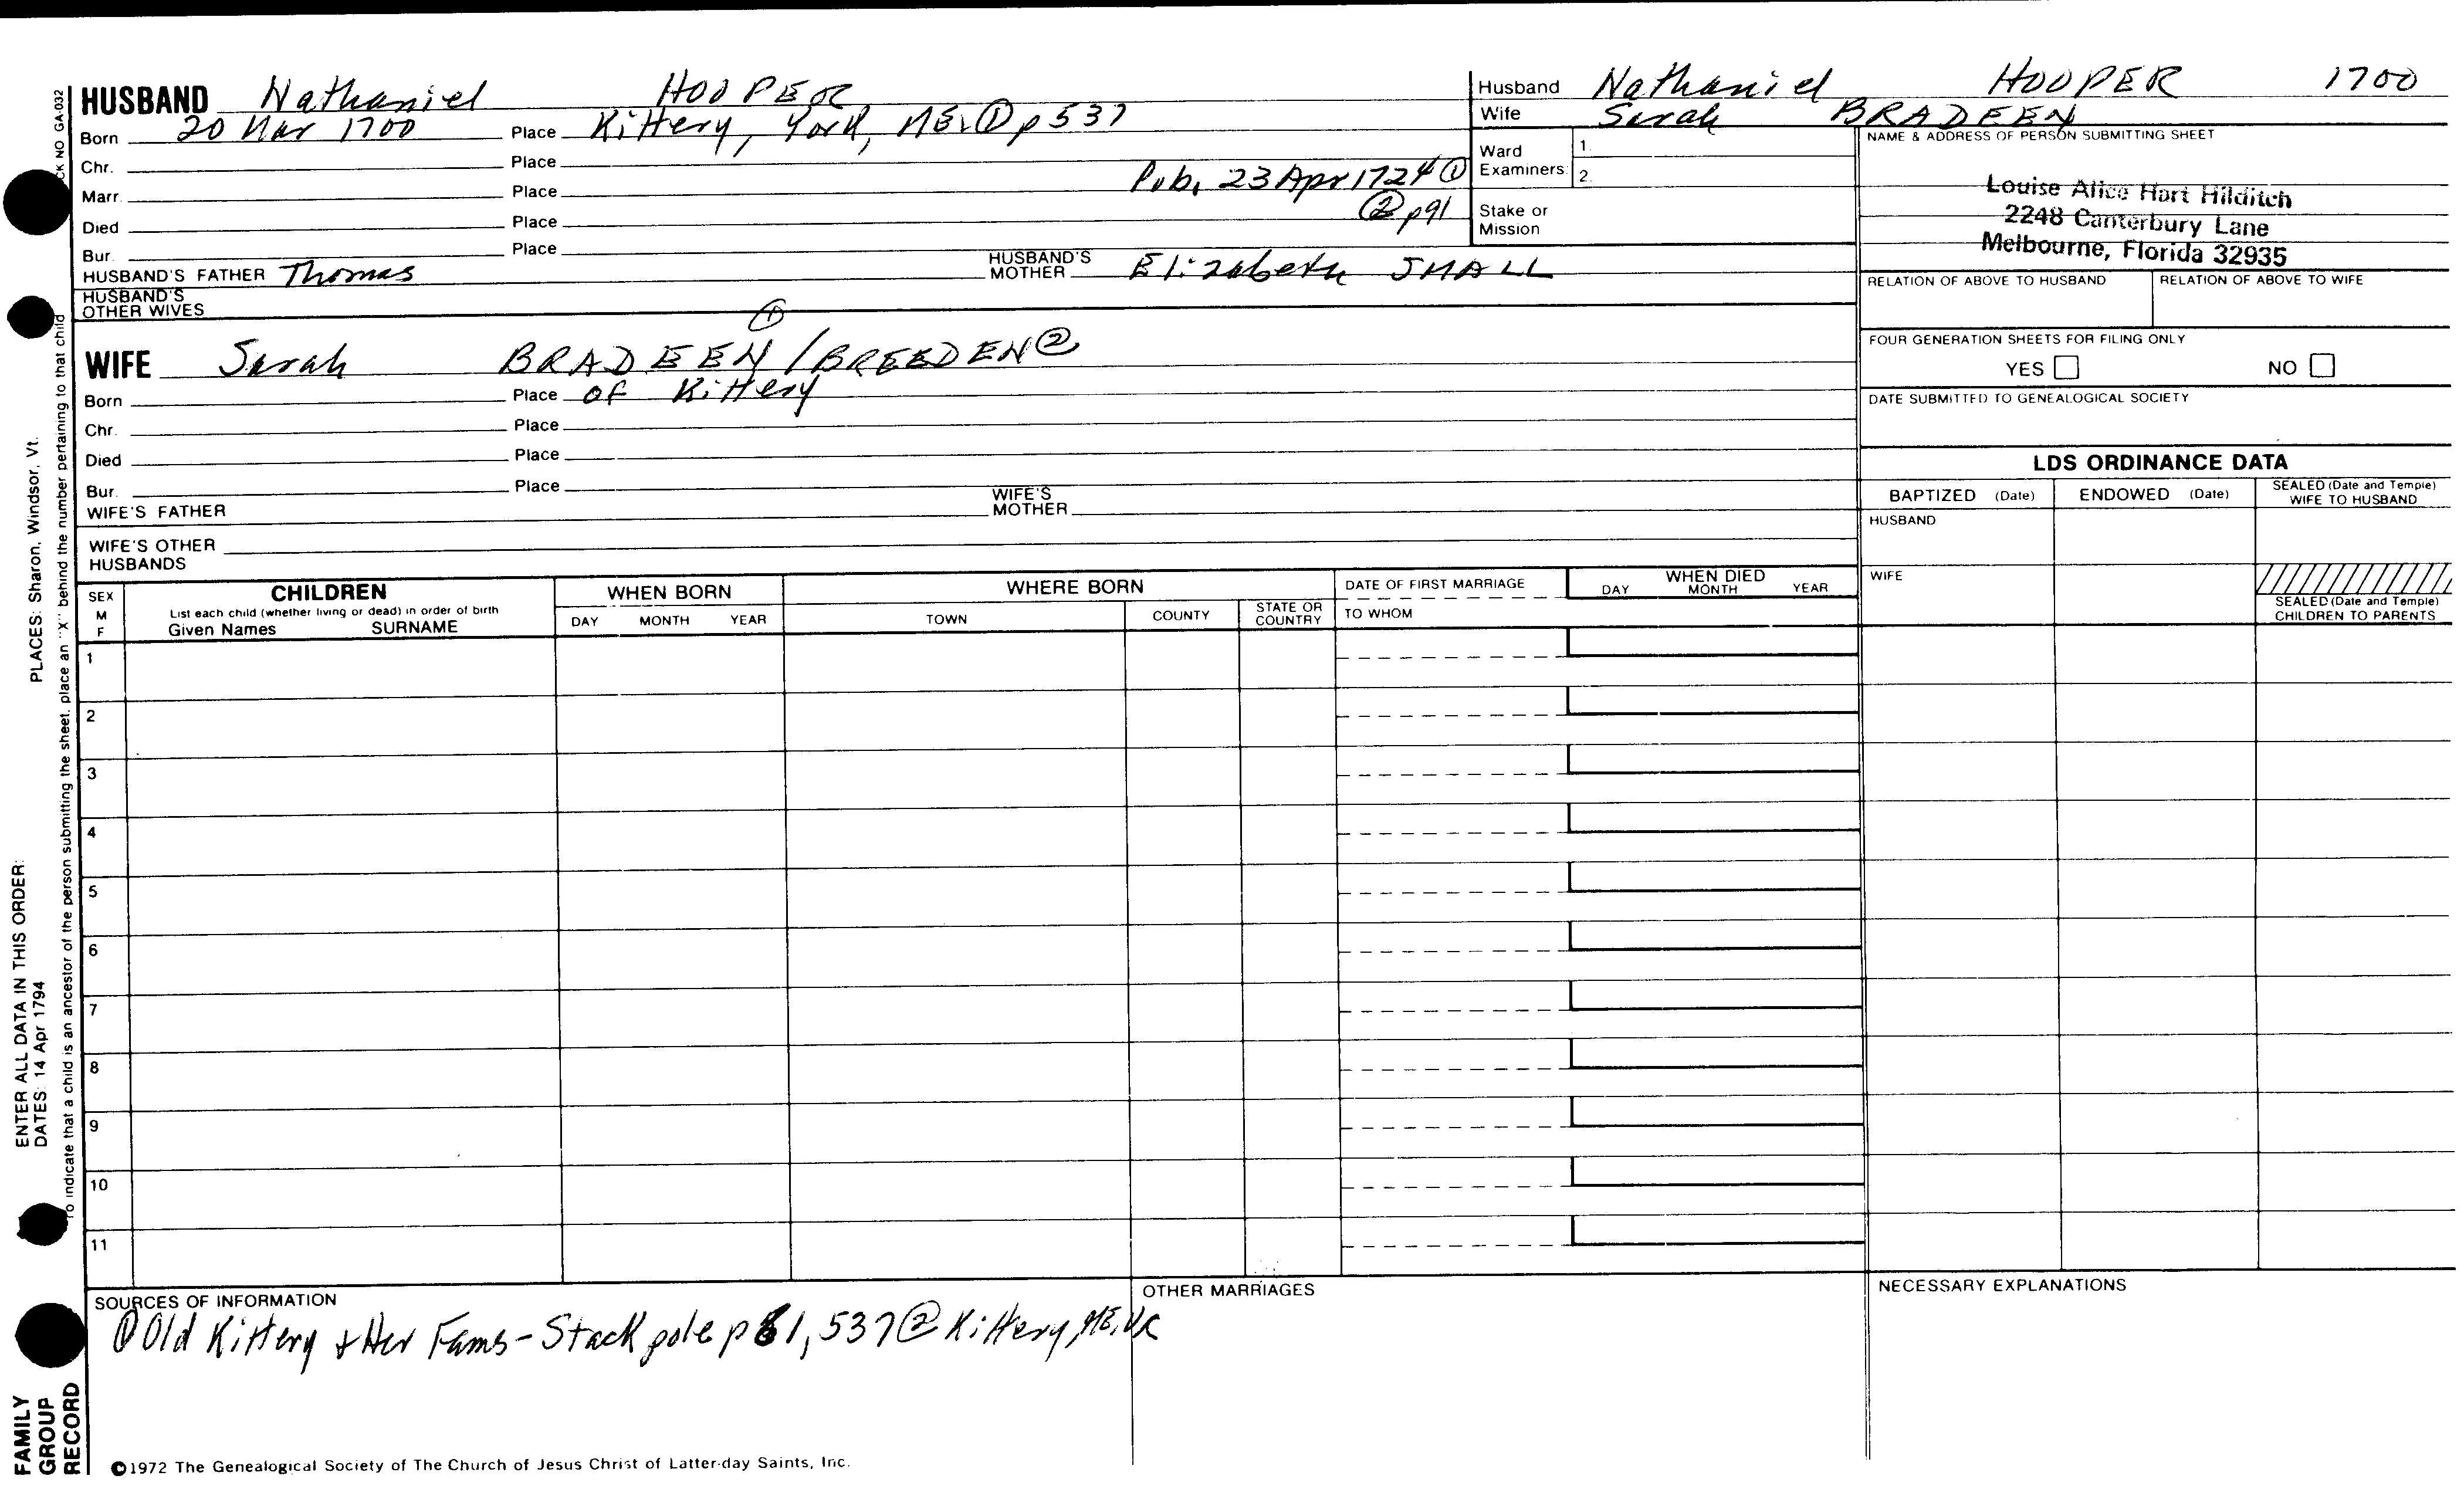 HUSBAND Nathaniel HOOPER
Born 20 Mar 1700 Place Kittery, York, ME. ① p 537
Chr. Place
Marr. Place Pub. 23 Apr 1724 ①
② p91
Died Place
Bur. Place
HUSBAND'S FATHER Thomas HUSBAND'S MOTHER Elizabeth SMALL
HUSBAND'S OTHER WIVES
①
WIFE Sarah BRADEEN / BREEDEN ②
Born Place of Kittery
Chr. Place
Died Place
Bur. Place
WIFE'S FATHER WIFE'S MOTHER
WIFE'S OTHER HUSBANDS
Husband Nathaniel HOOPER 1700
Wife Sarah BRADEEN
Ward Examiners: 1.
2.
Stake or Mission
NAME & ADDRESS OF PERSON SUBMITTING SHEET
Louise Alice Hart Hilditch
2248 Canterbury Lane
Melbourne, Florida 32935
RELATION OF ABOVE TO HUSBAND RELATION OF ABOVE TO WIFE
FOUR GENERATION SHEETS FOR FILING ONLY
YES NO
DATE SUBMITTED TO GENEALOGICAL SOCIETY
LDS ORDINANCE DATA
BAPTIZED (Date) ENDOWED (Date) SEALED (Date and Temple) WIFE TO HUSBAND
HUSBAND
WIFE
SEALED (Date and Temple) CHILDREN TO PARENTS
SEX M F
CHILDREN
List each child (whether living or dead) in order of birth
Given Names SURNAME
WHEN BORN
DAY MONTH YEAR
WHERE BORN
TOWN COUNTY STATE OR COUNTRY
DATE OF FIRST MARRIAGE
TO WHOM
WHEN DIED
DAY MONTH YEAR
1
2
3
4
5
6
7
8
9
10
11
SOURCES OF INFORMATION
① Old Kittery & Her Fams - Stackpole p 81, 537 ② Kittery, ME, VR
OTHER MARRIAGES
NECESSARY EXPLANATIONS
©1972 The Genealogical Society of The Church of Jesus Christ of Latter-day Saints, Inc.
FAMILY GROUP RECORD
ENTER ALL DATA IN THIS ORDER:
DATES: 14 Apr 1794
PLACES: Sharon, Windsor, Vt.
To indicate that a child is an ancestor of the person submitting the sheet, place an "X" behind the number pertaining to that child
CK NO GA-032